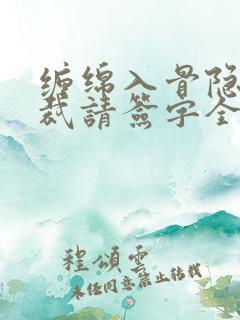 缠绵入骨隐
裁請簽字全
程頌雲
未经同意禁止转载